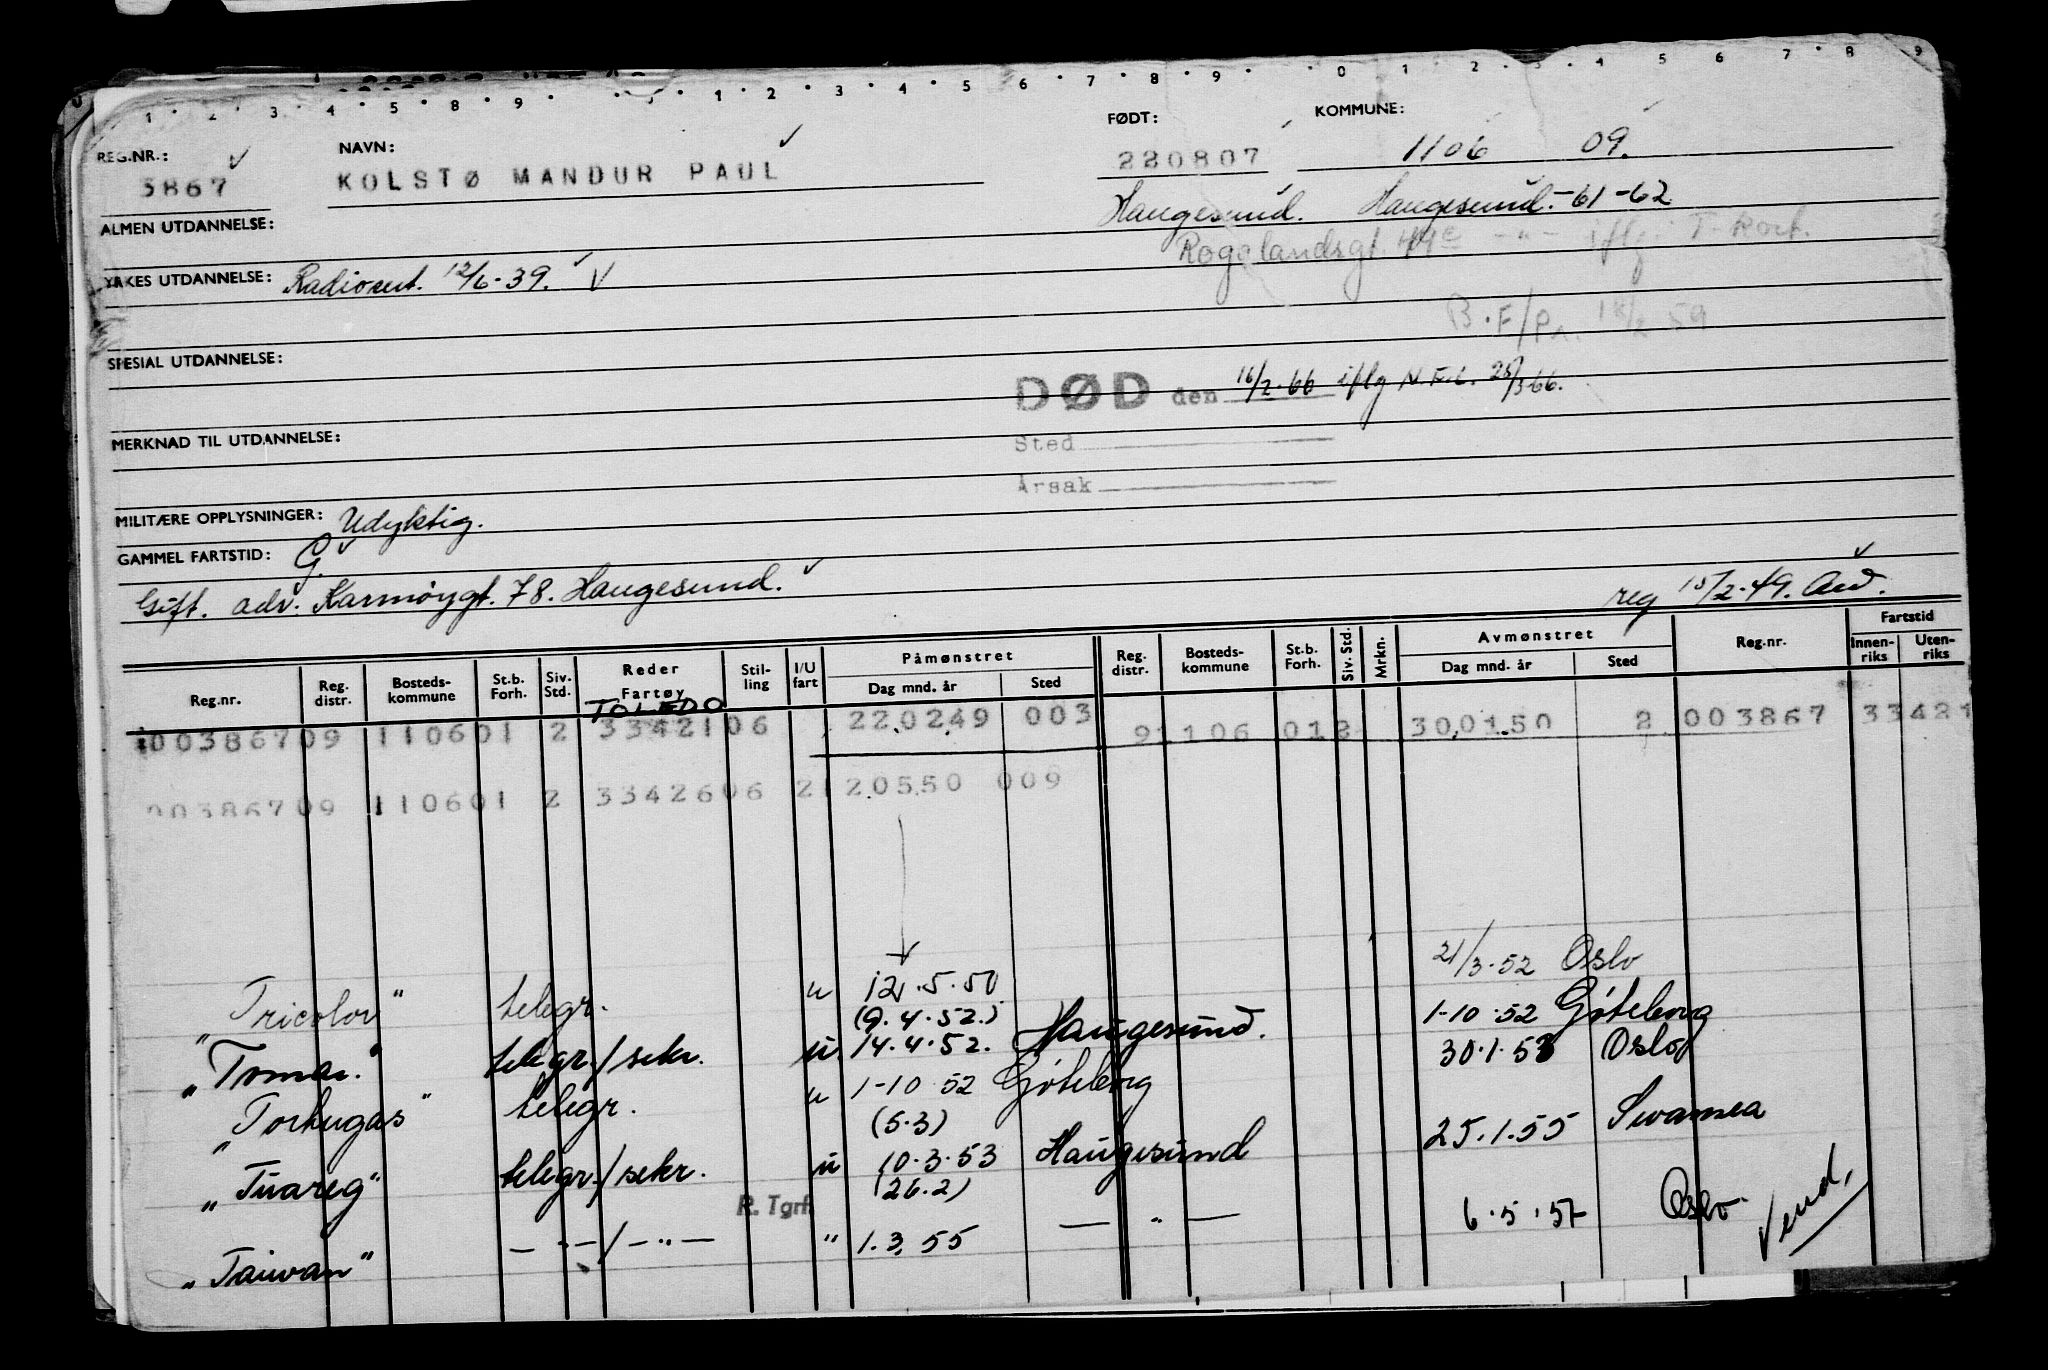 REG.NR.: NAVN: FØDT: KOMMUNE:
3867 KOLSTØ MANDUR PAUL 220807 1106 09.
ALMEN UTDANNELSE: Haugesund. Haugesund.-61-62
Rogalandsgt. 44e -"- iflg. T-kort.
YRKES UTDANNELSE: Radiosert. 12/6-39. V
B.F/Pn. 18/2 59
SPESIAL UTDANNELSE:
DØD den 16/2.66 iflg 25/3 66.
MERKNAD TIL UTDANNELSE: Sted
Årsak
MILITÆRE OPPLYSNINGER: Udyktig.
GAMMEL FARTSTID: G.
Gift. adr. Karmøygt. 78. Haugesund. reg 15/2.49.
Reg.nr. Reg. distr. Bosteds-kommune St.b. Forh. Siv. Std. Reder Fartøy Stil-ling I/U fart Påmønstret Dag mnd. år Sted Reg. distr. Bosteds-kommune St.b. Forh. Siv. Std. Mrkn. Avmønstret Dag mnd. år Sted Reg.nr. Fartstid Innen-riks Uten-riks
TOLEDO
003867 09 1106 01 2 33421 06 220249 003 9 1106 01 2 300150 2 003867 33421
003867 09 1106 01 2 33426 06 2 120550 009
"Tricolor" telegr. u 12.5.50 21/3.52 Oslo
(9.4.52.)
"Tomar." telegr./sekr. u 14.4.52. Haugesund. 1-10.52 Göteborg
"Tortugas" telegr. u 1-10.52 Göteborg 30.1.53 Oslo
(5.3)
"Tuareg" telegr./sekr. u 10.3.53 Haugesund 25.1.55 Swansea
R. Tgrf. (26.2)
"Taiwan" -"-/-"- " 1.3.55 -"- 6.5.57 Oslo. Vend.